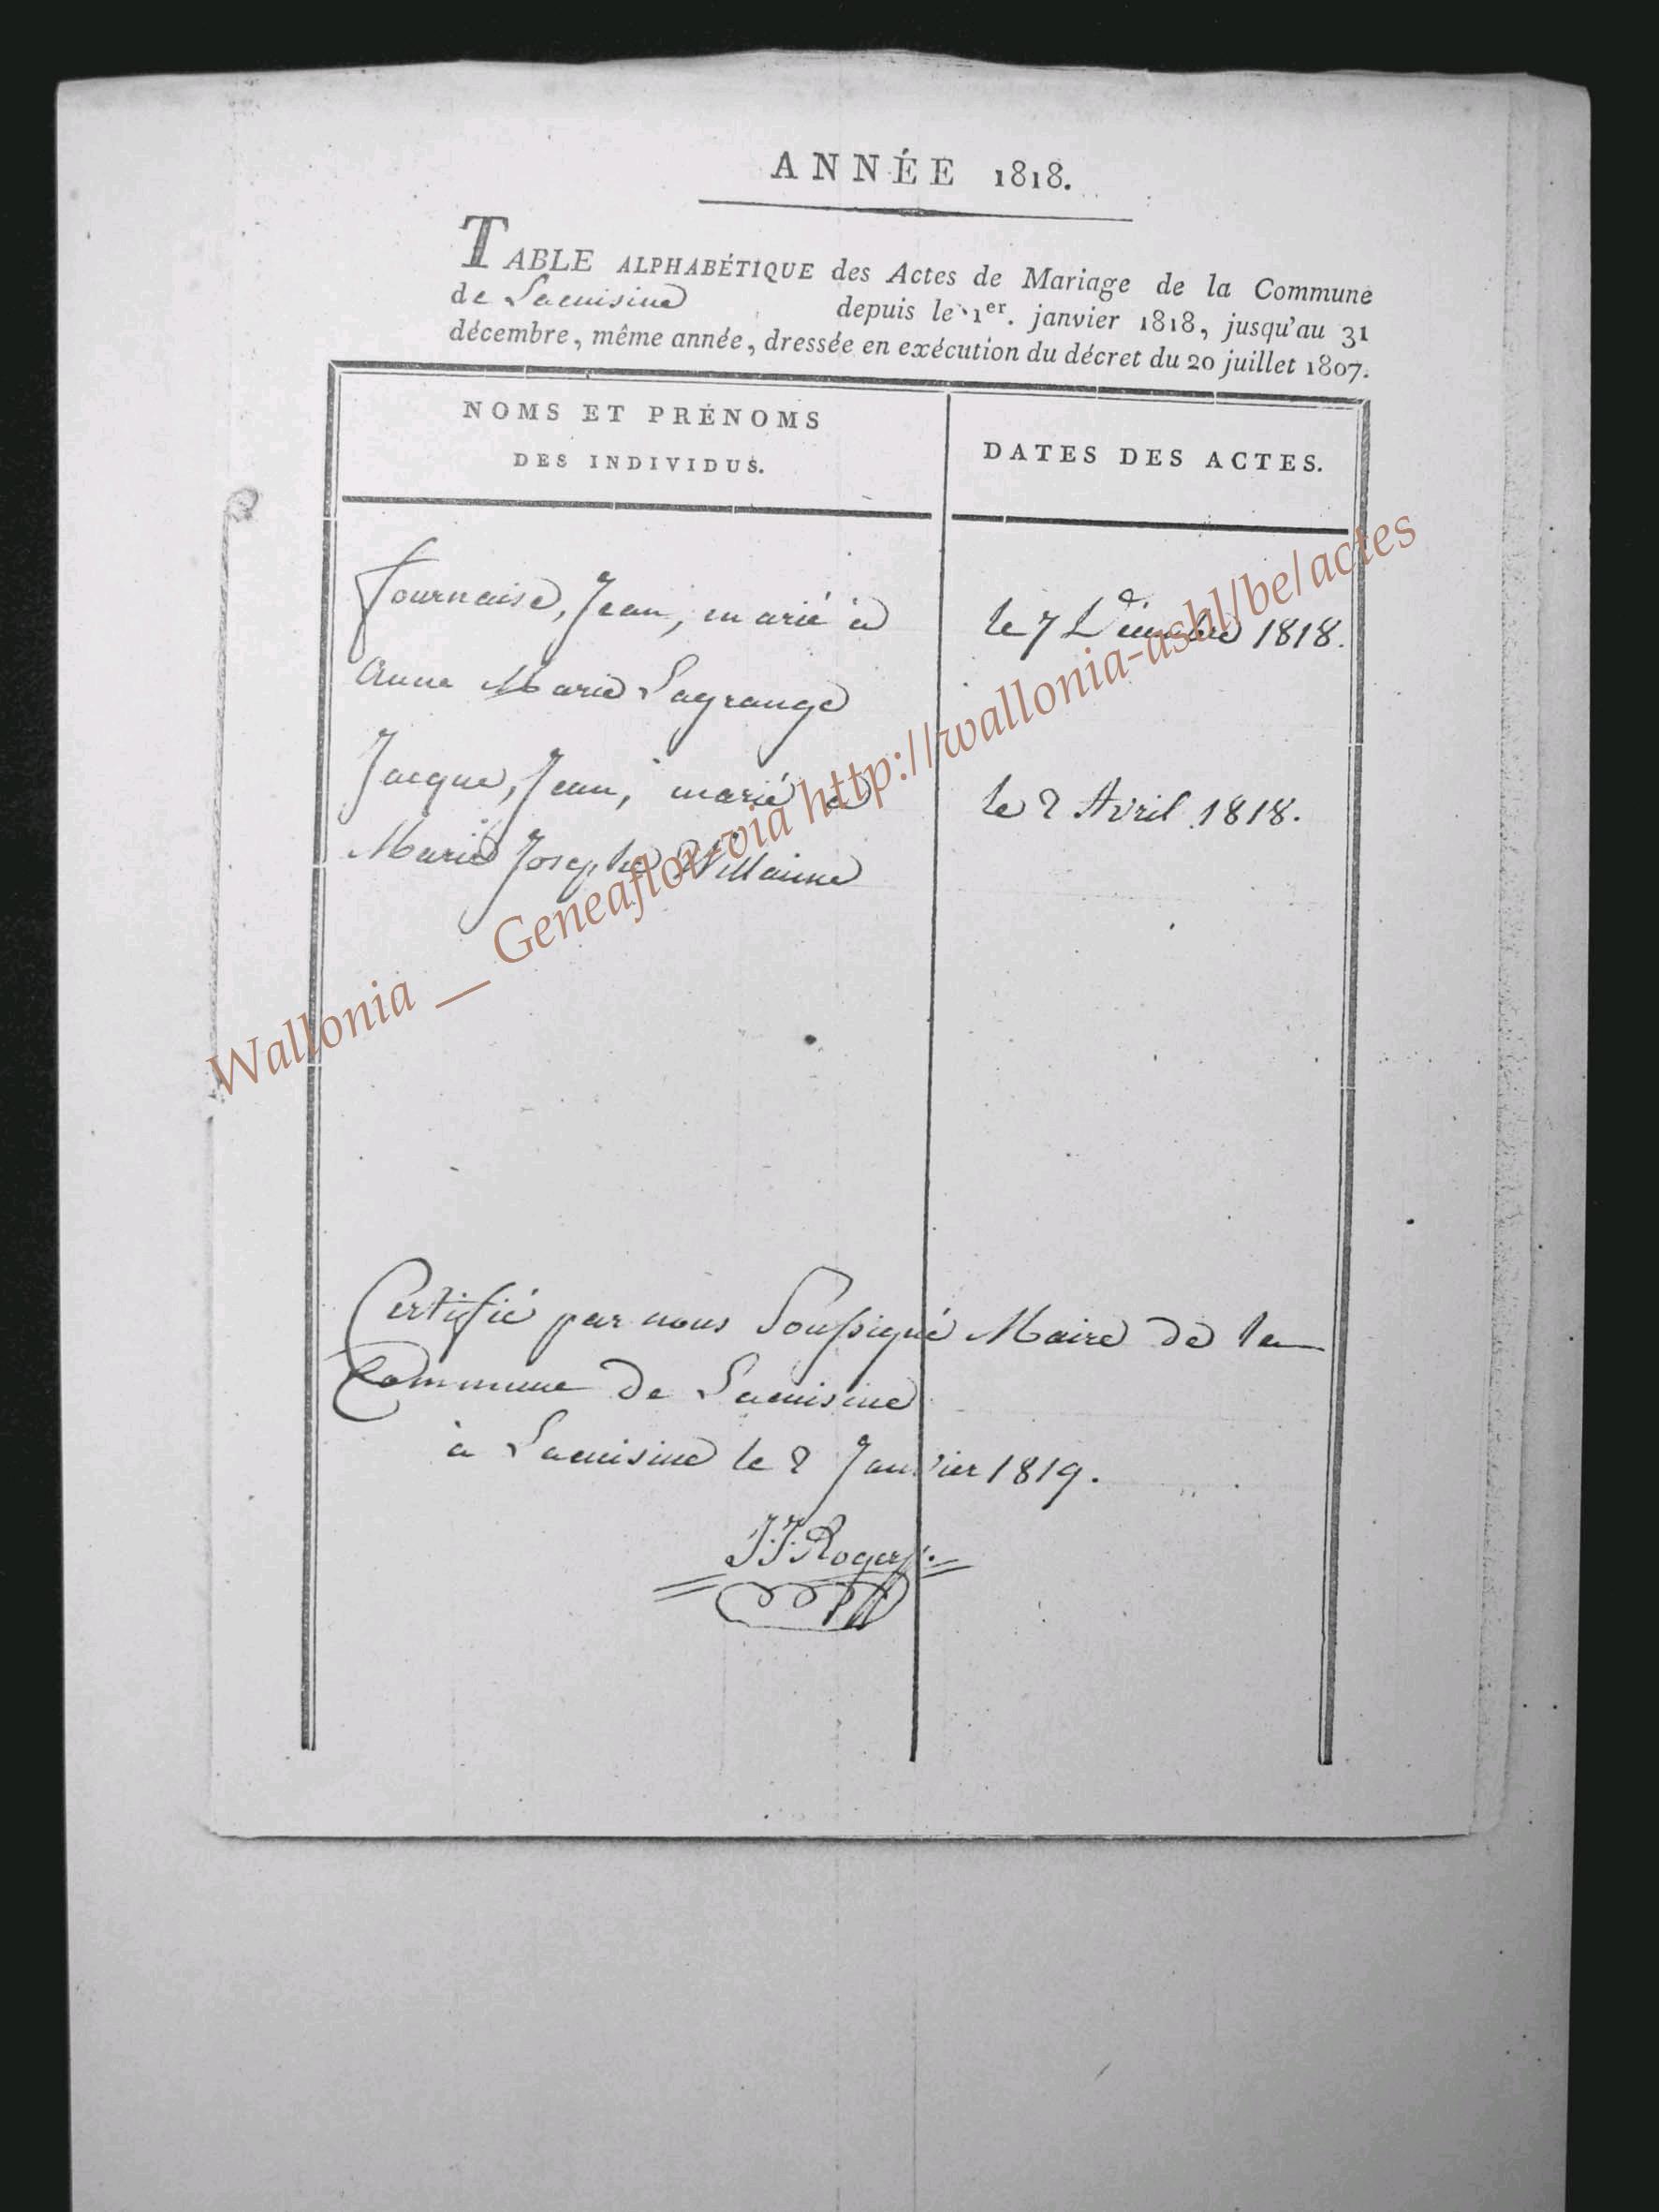 ANNÉE 1818.
TABLE ALPHABÉTIQUE des Actes de Mariage de la Commune
de Lacuisine depuis le 1er. janvier 1818, jusqu'au 31
décembre, même année, dressée en exécution du décret du 20 juillet 1807.
NOMS ET PRÉNOMS
DES INDIVIDUS.
DATES DES ACTES.
Fournaise, Jean, marié à
le 7 Décembre 1818.
Anne Marie Lagrange
Jacque, Jean, marié à
le 2 Avril 1818.
Marie Josephe Willaime
Wallonia __ Geneaflor via http://wallonia-asbl/be/actes
Certifié par nous Soussigné Maire de la
Commune de Lacuisine
à Lacuisine le 2 Janvier 1819.
J.J. Roger